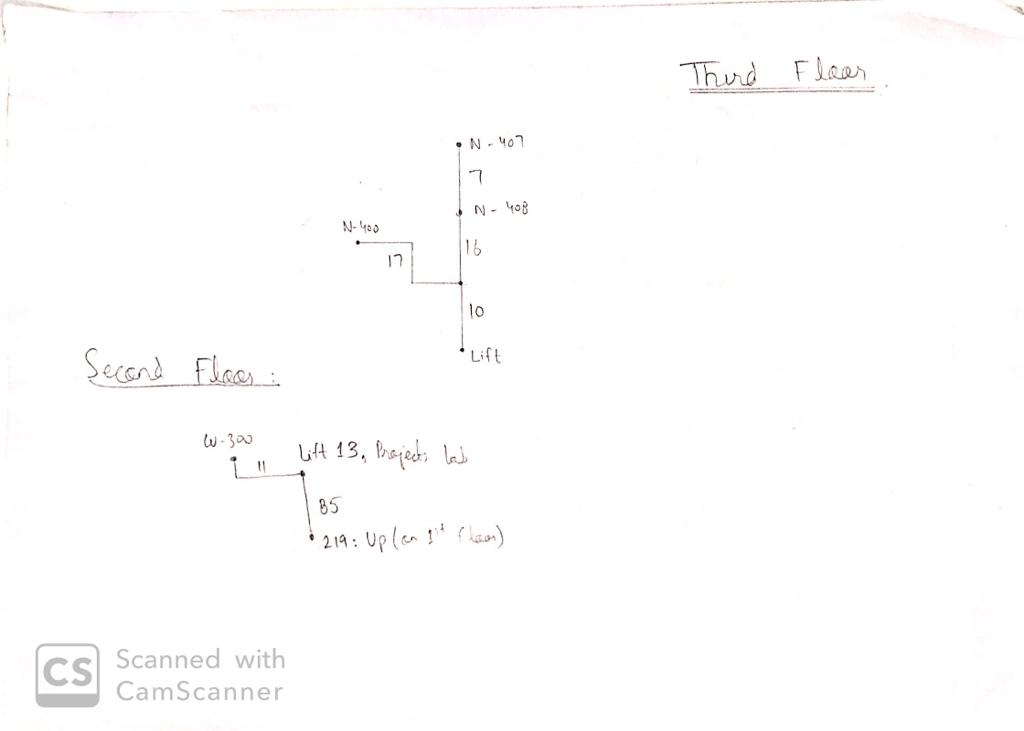 Third Floor
N - 407
7
N - 408
N-400
16
17
10
Lift
Second Floor :
W-300
Lift 13, Projects Lab
11
85
219: Up (on 1st floor)
CS Scanned with
CamScanner